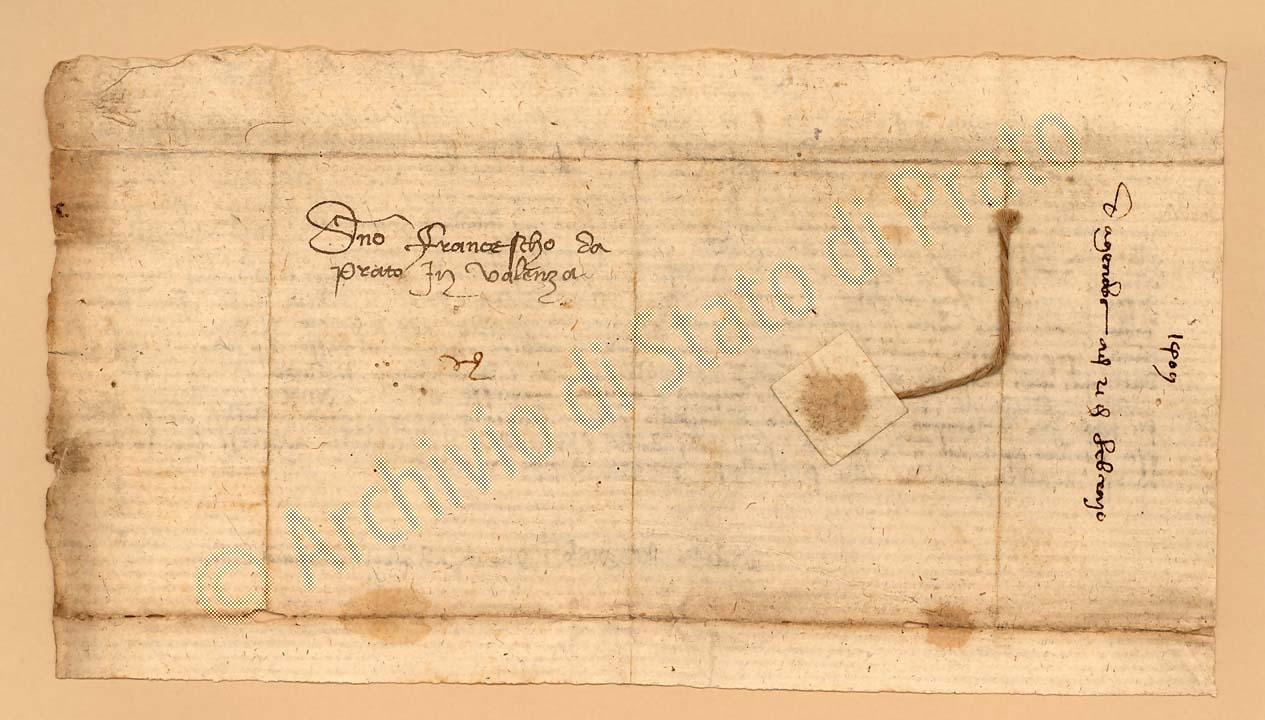 Dno Francescho da
Prato In Valenza
1409
adì 28 febraio
© Archivio di Stato di Prato